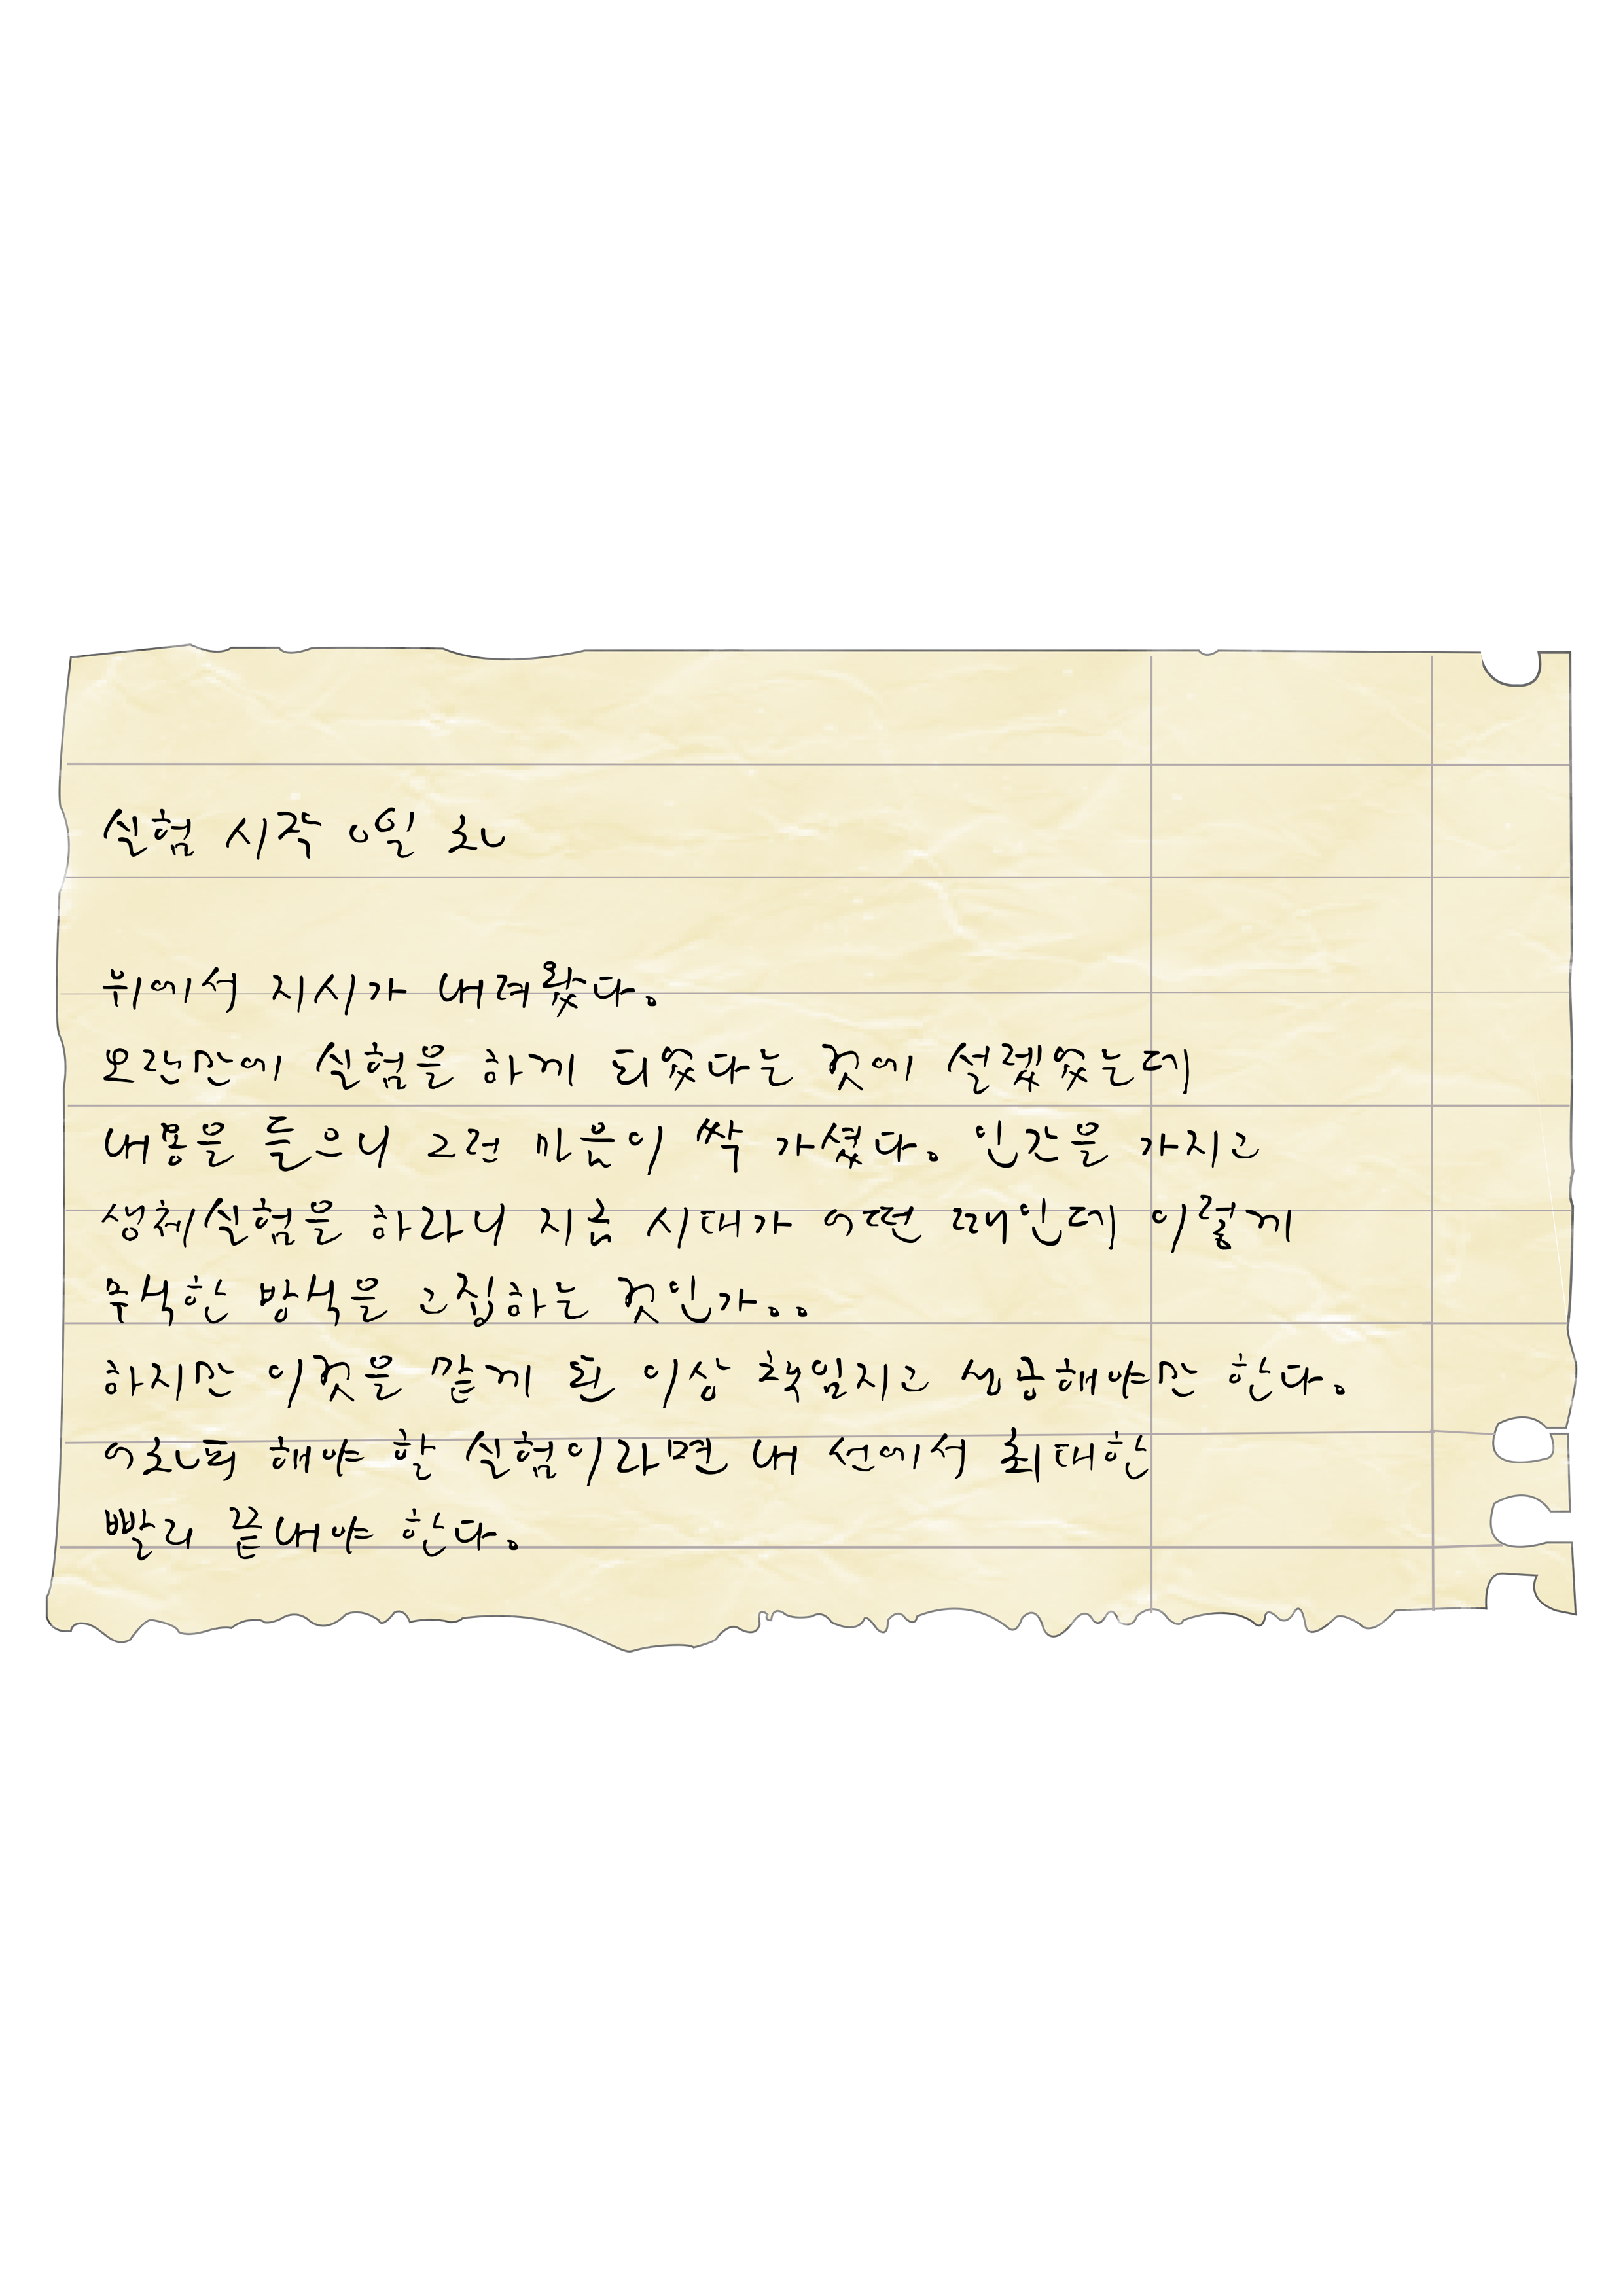 실험 시작 0일 차
위에서 지시가 내려왔다.
오랜만에 실험을 하게 되었다는 것에 설렜었는데
내용을 들으니 그런 마음이 싹 가셨다. 인간을 가지고
생체실험을 하라니 지금 시대가 어떤 때인데 이렇게
무식한 방식을 고집하는 것인가..
하지만 이것을 맡게 된 이상 책임지고 성공해야만 한다.
어차피 해야 할 실험이라면 내 선에서 최대한
빨리 끝내야 한다.